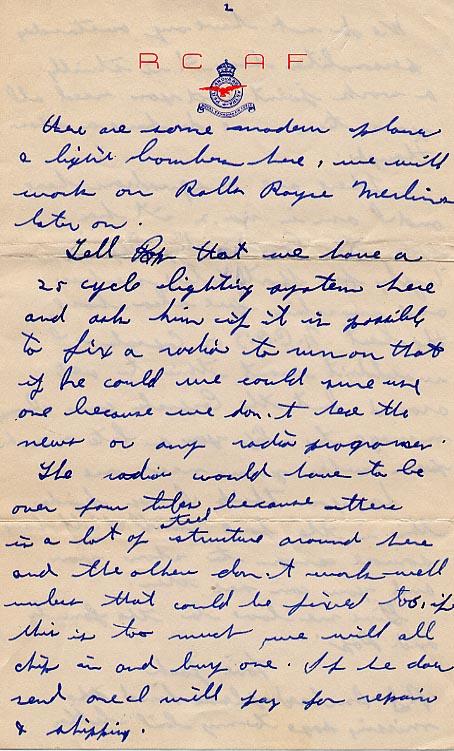 2
RCAF
there are some modern planes
& light bombers here, we will
work on Rolls Royce Merlins
later on.
Tell Pop that we have a
25 cycle lighting system here
and ask him if it is possible
to fix a radio to run on that
if he could we could sure use
one because we don't hear the
news or any radio programes.
The radio would have to be
over four tubes, because there
is a lot of steel structure around here
and the others don't work well
unless that could be fixed too, if
this is too much, we will all
chip in and buy one. If he does
send one I will pay for repair
& shipping.